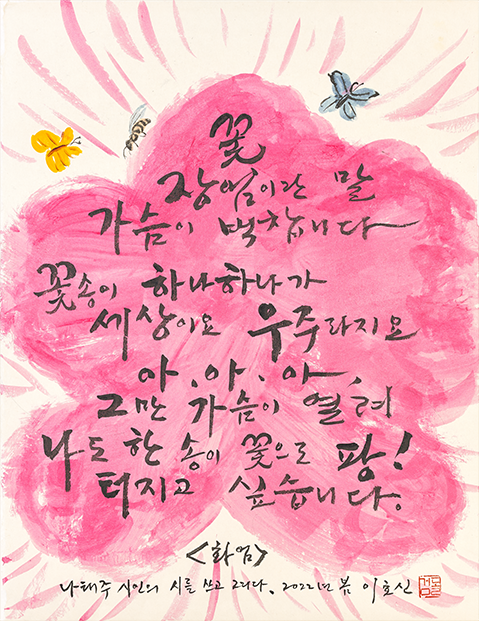 꽃
장엄이란 말
가슴이 벅찹니다
꽃송이 하나하나가
세상이요 우주라지요
아, 아, 아,
그만 가슴이 열려
나도 한 송이 꽃으로 팡!
터지고 싶습니다.
<화엄>
나태주 시인의 시를 쓰고 그리다. 2022년 봄 이호신